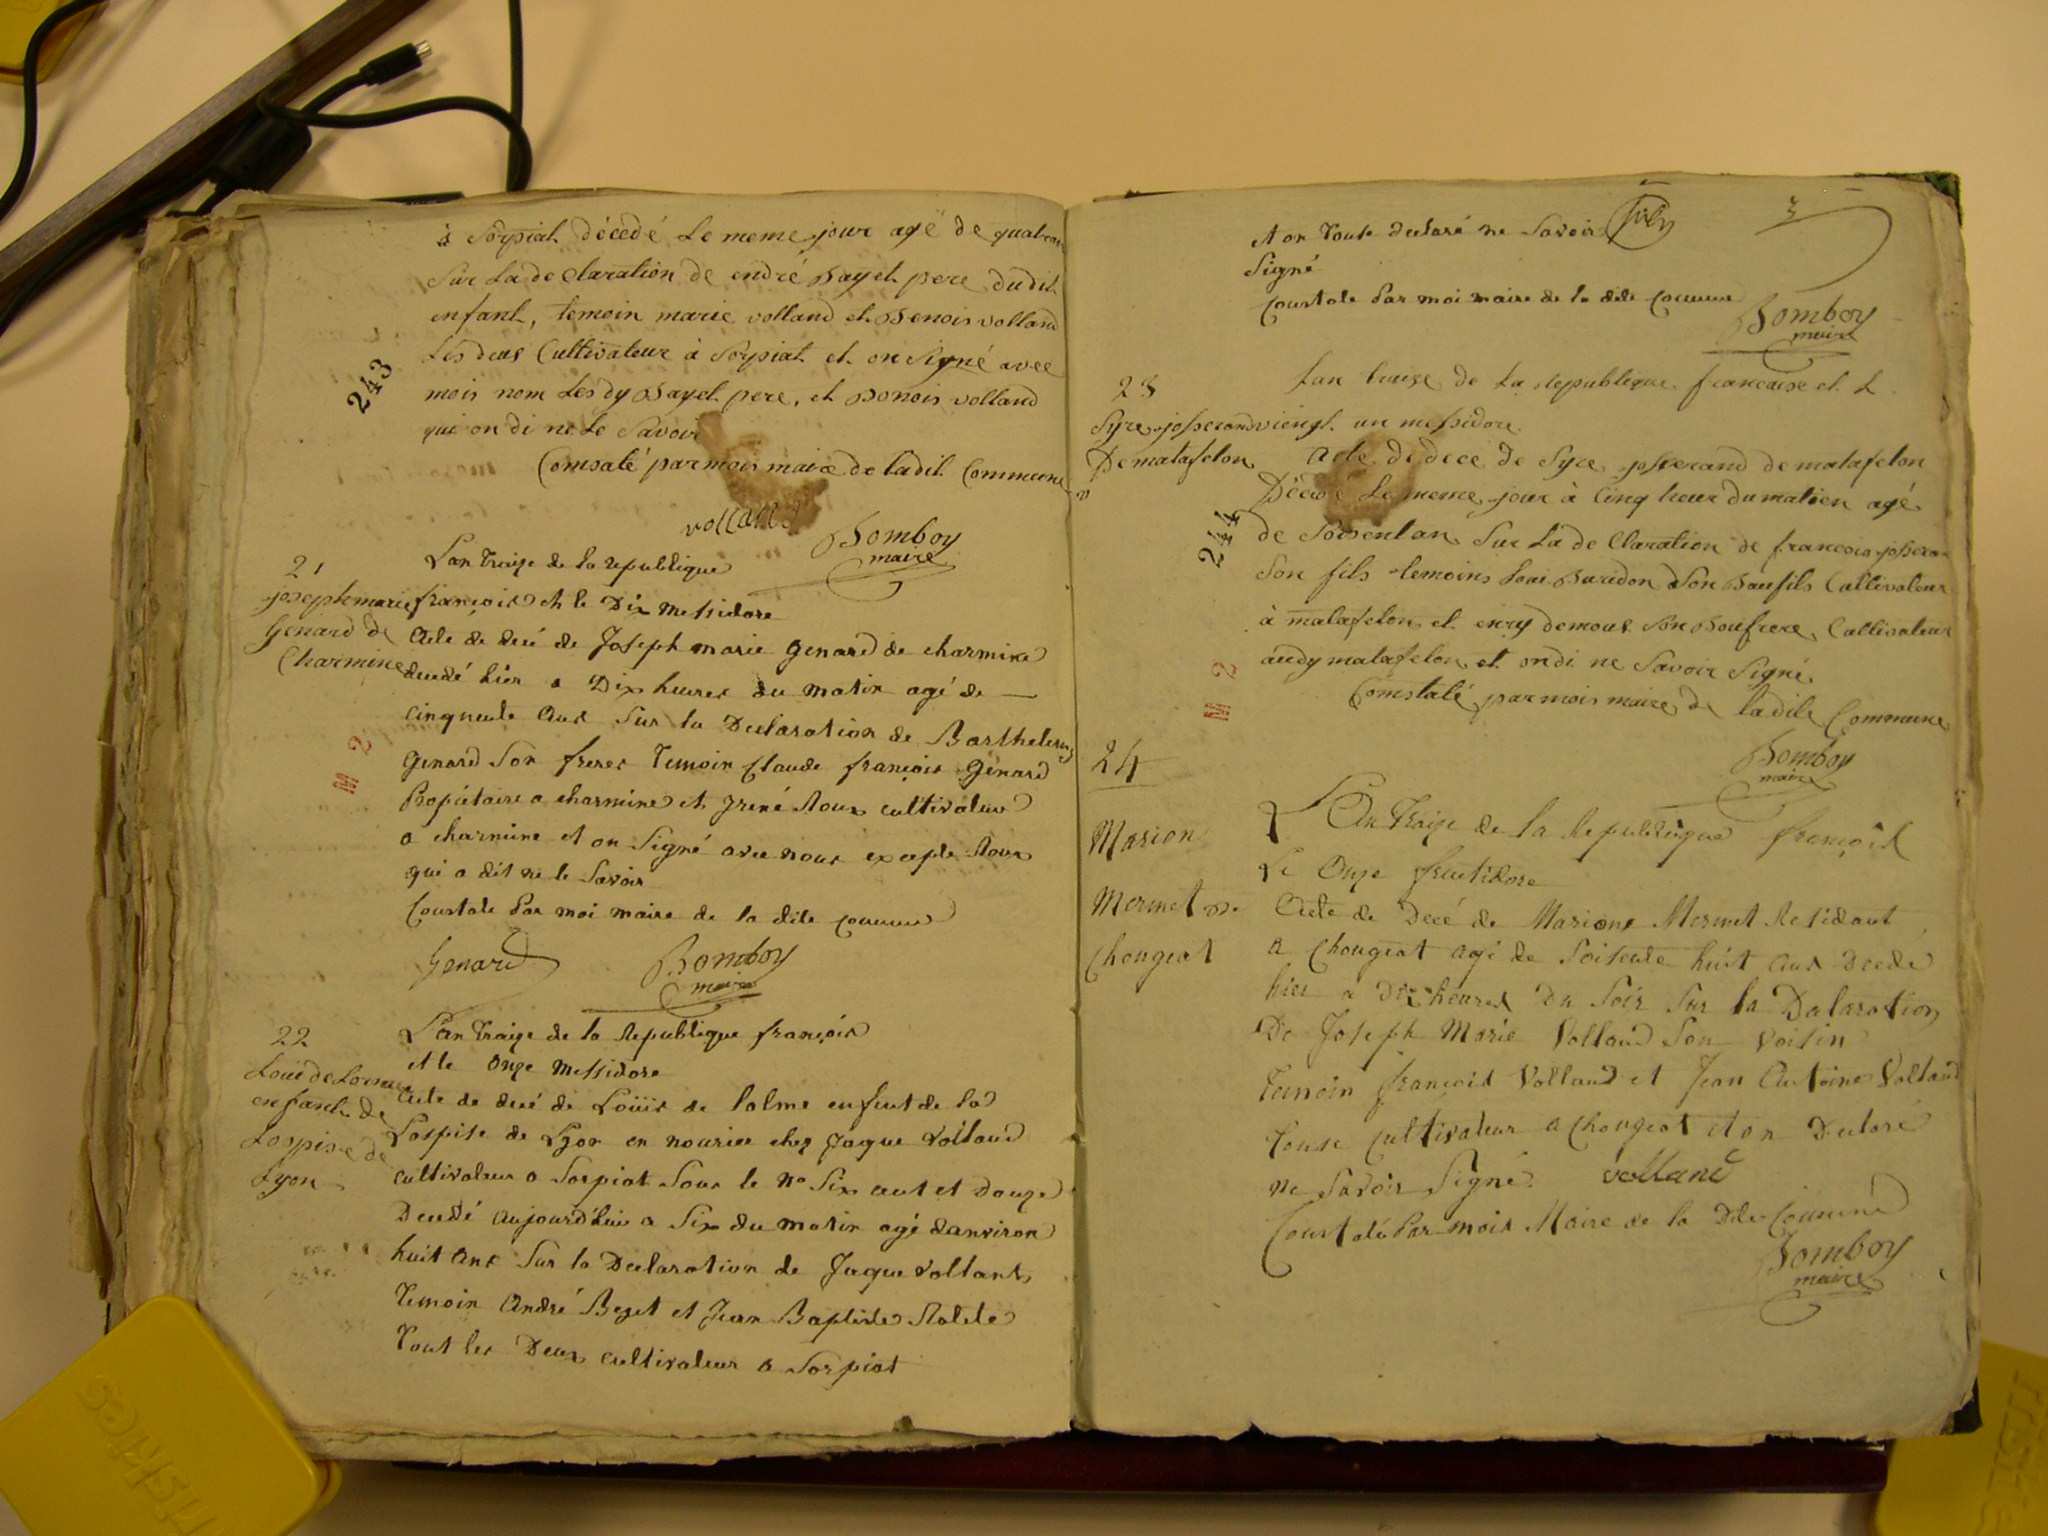 à Sorpiat décedé Le meme jour agé de quatre
Sur La de Claration de endré Bayet pere dudit
enfant, temoin marie volland et Benois volland
Les deus Cultivateur à Sorpiat et on Signé avec
mois nom Les dy Bayet pere, et Bonois volland
qui on di ne Le Savoir
Comsaté par mois maire de ladit Commune
volland
Bomboy
maire
243
21
joseph marie
Genard de
Charmine
L'an traize de la republique
françois et le Dix messidore
Acte de decé de Joseph marie genard de charmine
decedé hier a Dix heures du matin agé de
cinquente ans Sur la Declaration de Barthelemy
genard Son freres temoin Claude françois genard
Propiétaire a charmine et jrené Roux cultivateur
a charmine et on Signé avec nous excepte Roux
qui a dit ne le Savoir
Constate Par moi maire de la dite commune
Genard
Bomboy
maire
M 2
22
Loui de Lorme
enfant de
Lospise de
Lyon
L'an traize de la Republique françois
et le onze messidore
Acte de decé de Loüis de lalme enfent de la
Lospise de Lyon en nourice chez Jaque Volland
cultivateur a Sorpiat Sous le no Six cent et douze
Decedé aujourd'hui a Six du matin agé danviron
huit ans Sur la Declaration de Jaque Vollant
temoin André Bezet et Jean Baptiste
tout les Deux cultivateur a Sorpiat
et on toute declaré ne Savoir
Signé
Constate Par moi maire de la dite commune
Bomboy
maire
3
23
Syre josserand
De matafelon
Lan traize de La republique francaise et L
viengt un messidore
Acte de dece de Syre josserand de matafelon
Décédé Le meme jour à Cinq heur du matien agé
de Soisentan Sur La de Claration de francois josseran
Son fils temoins Loui Buridon Son Baufils Cultivateur
à matafelon et enry demous Son Boufrere Cultivateur
audy matafelon et ondi ne Savoir Signé
Comstaté par mois maire de ladite Commune
Bomboy
maire
244
M 2
24
Marion
Mermet De
Chougeat
L'An traize de la Republique françois
Le onze fructidore
Acte de Decé de Marione Mermet Residant
a Chougeat agé de Soisente huit ans Decedé
hier a Dix heures Du Soir Sur la Dalaration
De Joseph Marie Volland Son Voisin
temoin françois Volland et Jean Antoine Volland
touse cultivateur a Chougeat et on Declaré
ne Savoir Signé
volland
Constaté Par mois Maire de la Dite Commune
Bomboy
maire